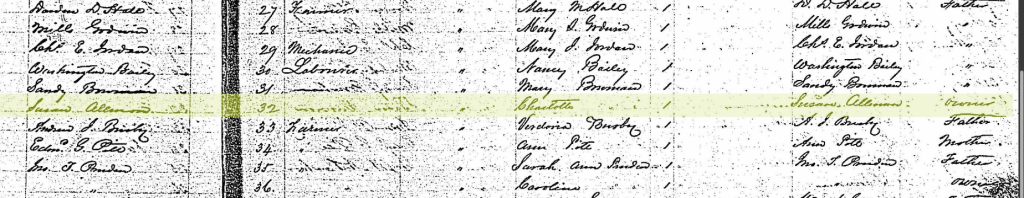 Harden D. Hale 27 Farmer " Mary M Hale 1 H. D. Hale Father
Mills Godwin 28 " " Mary S. Godwin 1 Mills Godwin "
Chs. E. Jordan 29 Mechanic " Mary S. Jordan 1 Chs. E. Jordan "
Washington Bailey 30 Labourer " Nancy Bailey 1 Washington Bailey "
Sandy Bowman 31 " Mary Bowman 1 Sandy Bowman "
Susan 32 " Charlotte 1 Susan owner
Andrew J. Busby 33 Farmer " Busby 1 A. J. Busby Father
Edw. G. Pitt 34 " " Ann Pitt 1 Ann Pitt Mother
Jno. T. Pruden 35 " " Sarah Ann Pruden 1 Jno. T. Pruden Father
36 " Caroline 1 owner